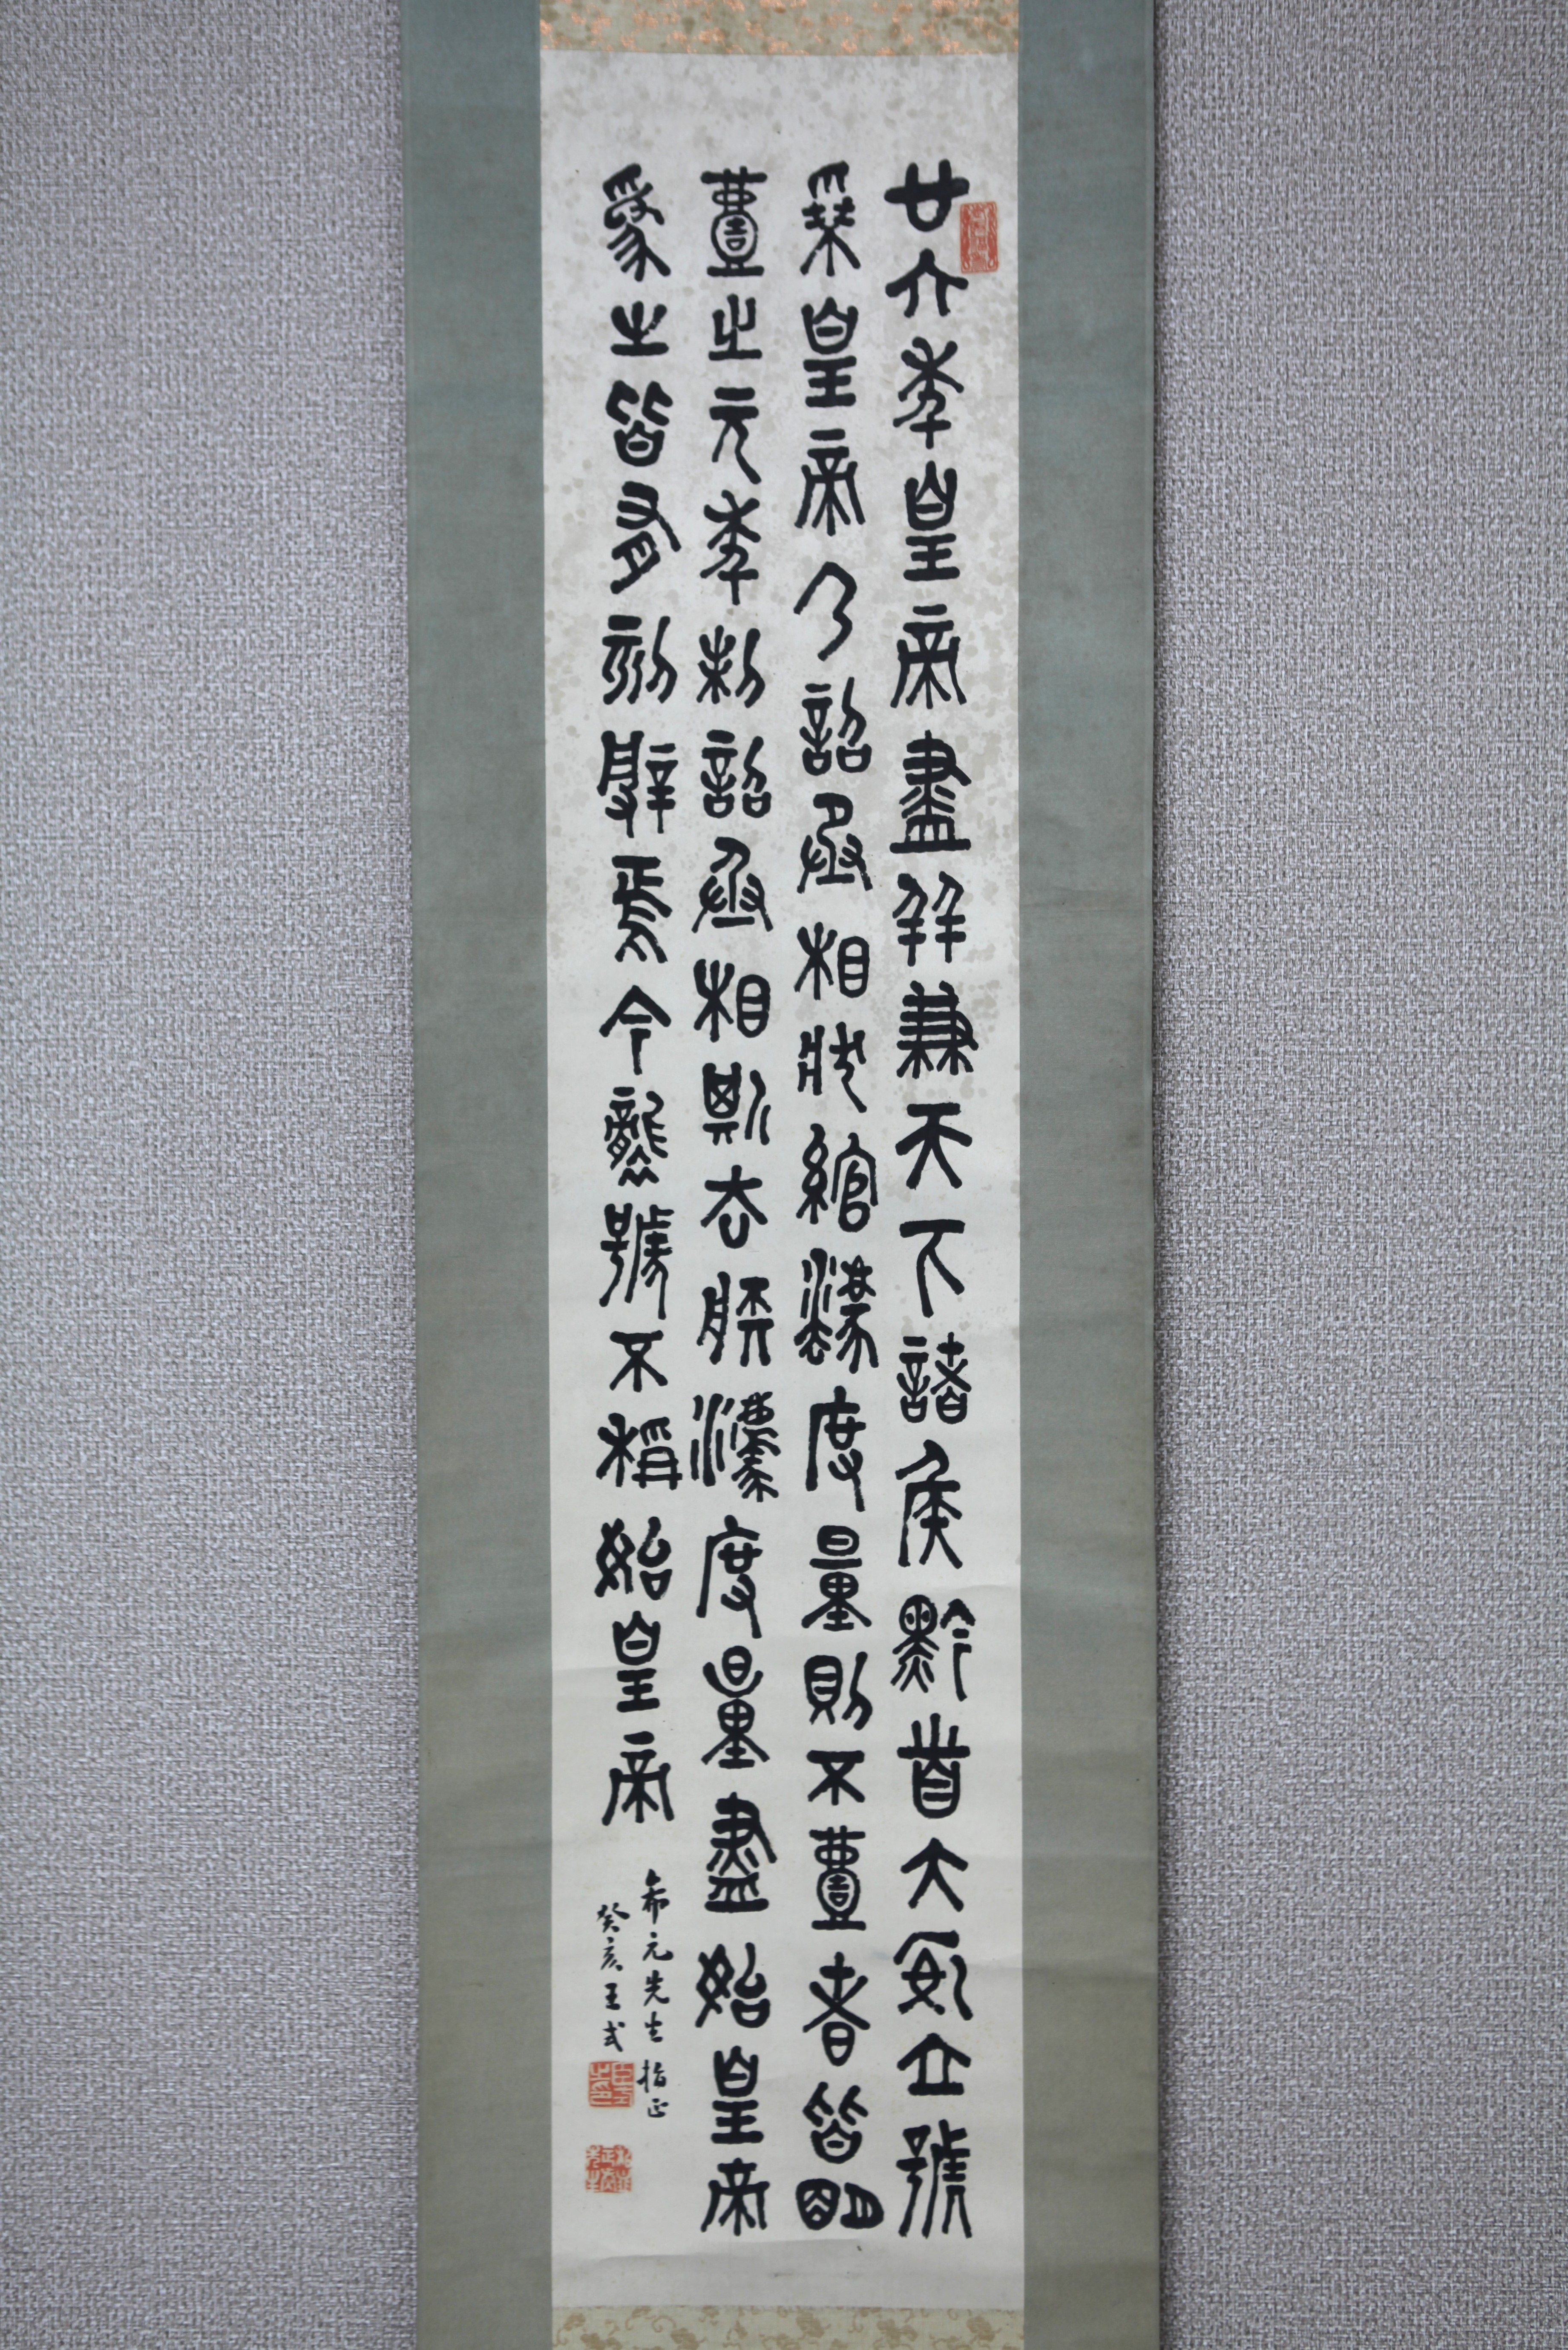 廿六年皇帝盡并兼天下諸侯黔首大安立號
為皇帝乃詔丞相狀綰灋度量則不壹者皆明
壹之元年制詔丞相斯去疾灋度量盡始皇帝
為之皆有刻辭焉今襲號不稱始皇帝
希元先生指正
癸亥王式